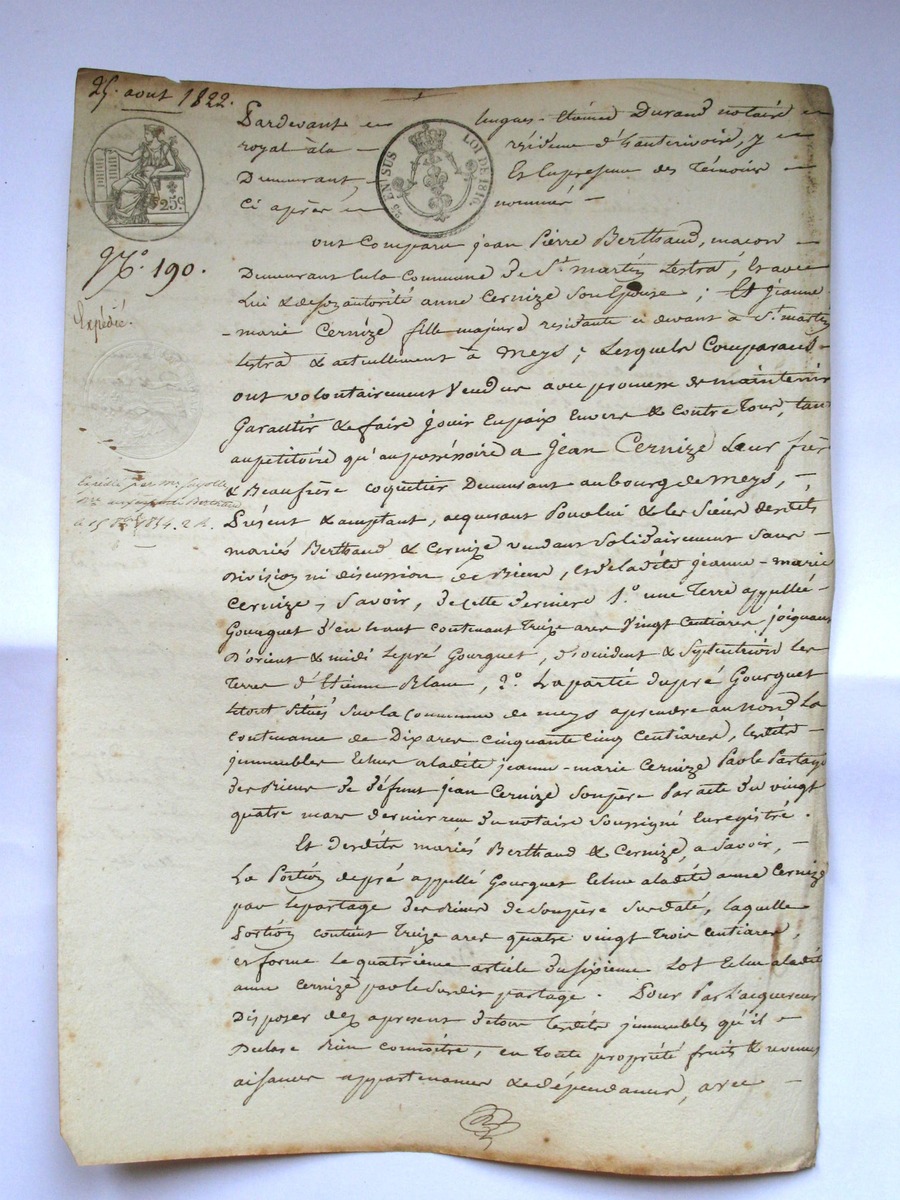 25. aout 1822.
25c
25 EN SUS
LOI DE 1816.
N.° 190.
Expédié.
Pardevant hugues-Etienne Durand notaire
royal à la résidence d'hauterivoire, y
Demeurant, Et la presence des Témoins
Ci après nommés
ont Comparu jean Pierre Berthaud, macon
Demeurant la Commune de St. martin Lestra, Et avec
Lui & de son autorité anne Cernize Son Epouse ; Et jeanne
-marie Cernize fille majeure residante ci devant à St. martin
Lestra & actuellement à Meys ; Lesquels Comparans
ont volontairement Vendu avec promesse de maintenir
Garantir & faire jouir En paix Envers & Contre Tous, tan
au petitoire qu'au possessoire a Jean Cernize Leur frère
& Beaufrère coquetier Demeurant au bourg de meys,
Présent & acceptant, acquerant Pour lui & les Siens desdits
mariés Berthaud & Cernize vendans Solidairement Sans
Division ni discussion de Biens, Et de ladite jeanne-marie
Cernize, Savoir, de cette derniere 1.° une Terre appellée
Gourguet d'en haut contenant Treize ares Vingt Centiares joignant
D'orient & midi Le pré Gourguet, d'occident & Septentrion les
Terres d'Etienne Blanc, 2.° La partie du pré Gourguet
Le tout Situés Sur la Commune de meys a prendre au Nord La
contenance de Dix ares Cinquante cinq Centiares, Lesdits
jmmeubles Echus a ladite jeanne-marie Cernize Par le Partage
des Biens de défunt jean Cernize Son père Par acte du vingt
quatre mars dernier reçu du notaire Soussigné Enregistré.
Et desdits mariés Berthaud & Cernize, a Savoir,
La Portion de pré appellé Gourguet Echue a ladite anne Cernize
par le partage des Biens de Son père Sus daté, laquelle
Portion contient Treize ares quatre vingt Trois Centiares,
et forme Le quatrieme article du Sixieme Lot Echu a ladite
anne Cernize par le Susdit partage. Pour Par L'acquereur
Disposer dez a present de tous lesdits jmmeubles qu'il
Declare Bien connoitre, en Toute propriété fruits & revenus
aisances appartenances & dépendances, avec